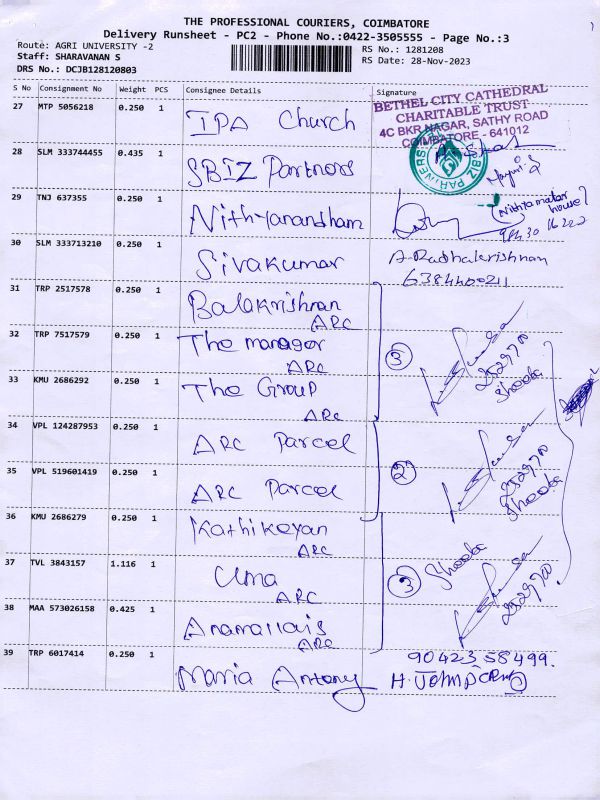 THE PROFESSIONAL COURIERS, COIMBATORE
Delivery Runsheet - PC2 - Phone No.:0422-3505555 - Page No.:3
Route: AGRI UNIVERSITY -2
Staff: SHARAVANAN S
DRS No.: DCJB128120803
RS No.: 1281208
RS Date: 28-Nov-2023
S No Consignment No Weight PCS Consignee Details Signature
27 MTP 5056218 0.250 1 IPA Church
BETHEL CITY CATHEDRAL
CHARITABLE TRUST
4C BKR NAGAR, SATHY ROAD
COIMBATORE - 641012
28 SLM 333744455 0.435 1 SBIZ Partners
29 TNJ 637355 0.250 1 Nithyanandham
30 SLM 333713210 0.250 1 Sivakumar
A. Radhakrishnan
6384400211
31 TRP 2517578 0.250 1 Balakrishnan
ARC
32 TRP 7517579 0.250 1 The manager
ARC
3
2529700
Shoeba
33 KMU 2686292 0.250 1 The Group
ARC
34 VPL 124287953 0.250 1 ARC Parcel
2
2529700
Shoeba
35 VPL 519601419 0.250 1 ARC Parcel
36 KMU 2686279 0.250 1 Kathikeyan
ARC
37 TVL 3843157 1.116 1 Uma
ARC
3
Shoeba
2529700
38 MAA 573026158 0.425 1 Anamallais
ARC
39 TRP 6017414 0.250 1 Maria Antony
90423 58499.